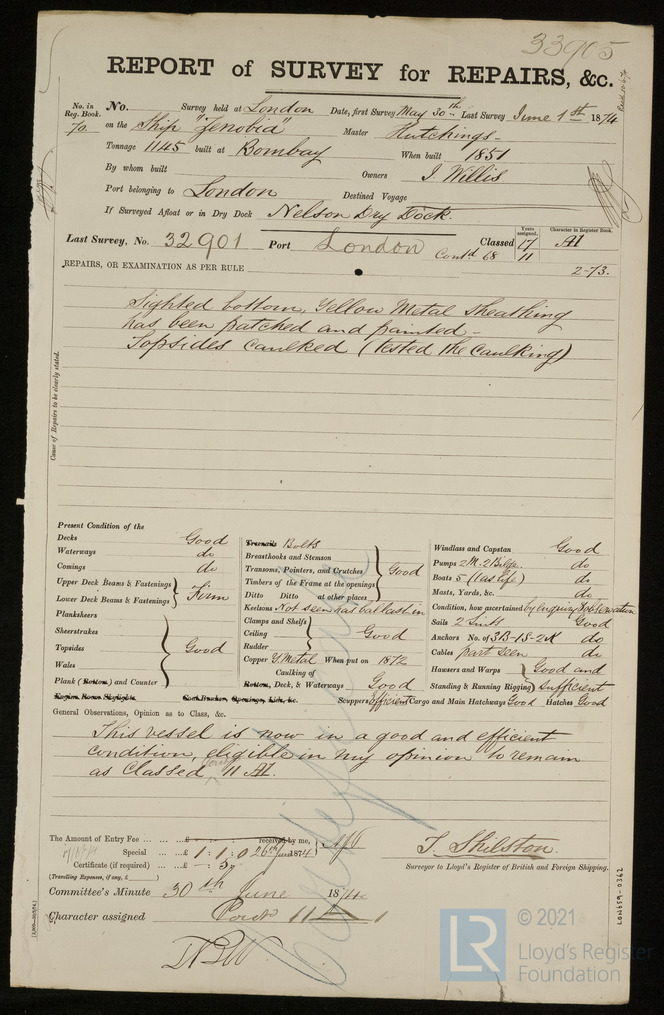 33905
REPORT of SURVEY for REPAIRS, &c.
No. in Reg. Book. No. Survey held at London Date, first Survey May 30th Last Survey June 1st 1874
70 on the Ship "Zenobia" Master Hutchings
Tonnage 1145 built at Bombay When built 1851
By whom built Owners J. Willis
Port belonging to London Destined Voyage
If Surveyed Afloat or in Dry Dock Nelson Dry Dock.
Last Survey, No. 32901 Port London Classed Years assigned. 17 Character in Register Book. A1
Contd 68 11
2-73.
REPAIRS, OR EXAMINATION AS PER RULE
Sighted bottom, Yellow Metal Sheathing
has been patched and painted -
Topsides Caulked (tested the Caulking)
Cause of Repairs to be clearly stated.
Present Condition of the
Decks Good
Waterways do
Comings do
Upper Deck Beams & Fastenings
Lower Deck Beams & Fastenings } Firm
Planksheers
Sheerstrakes
Topsides } Good
Wales
Plank (Bottom) and Counter
Engine Room Skylights Coal Bunker, Openings, Lids, &c.
Treenails Bolts
Breasthooks and Stemson
Transoms, Pointers, and Crutches } Good
Timbers of the Frame at the openings
Ditto Ditto at other places
Keelsons Not seen has ballast in
Clamps and Shelfs
Ceiling } Good
Rudder
Copper Y. Metal When put on 1872
Caulking of
Bottom, Deck, & Waterways Good
Scuppers efficient Cargo and Main Hatchways Good Hatches Good
Windlass and Capstan Good
Pumps 2 M. 2 Bilge. do
Boats 5 (1 as life) do
Masts, Yards, &c. do
Condition, how ascertained by Enquiry & Observation
Sails 2 Suits Good
Anchors No. of 3B-1S-2K do
Cables part seen do
Hawsers and Warps } Good and
Standing & Running Rigging } Sufficient
General Observations, Opinion as to Class, &c.
This vessel is now in a good and efficient
condition, eligible in my opinion to remain
as Classed, 11 A1.
The Amount of Entry Fee ... £ received by me,
Special ... £ 1 : 1 : 0 26th June 1874
Certificate (if required) ... £ - : 5 : -
(Travelling Expenses, if any, £ )
T. Skilston.
Surveyor to Lloyd's Register of British and Foreign Shipping.
Committee's Minute 30th June 1874
Character assigned Contd 11 A 1
LON659-0362
© 2021
LR Lloyd's Register
Foundation